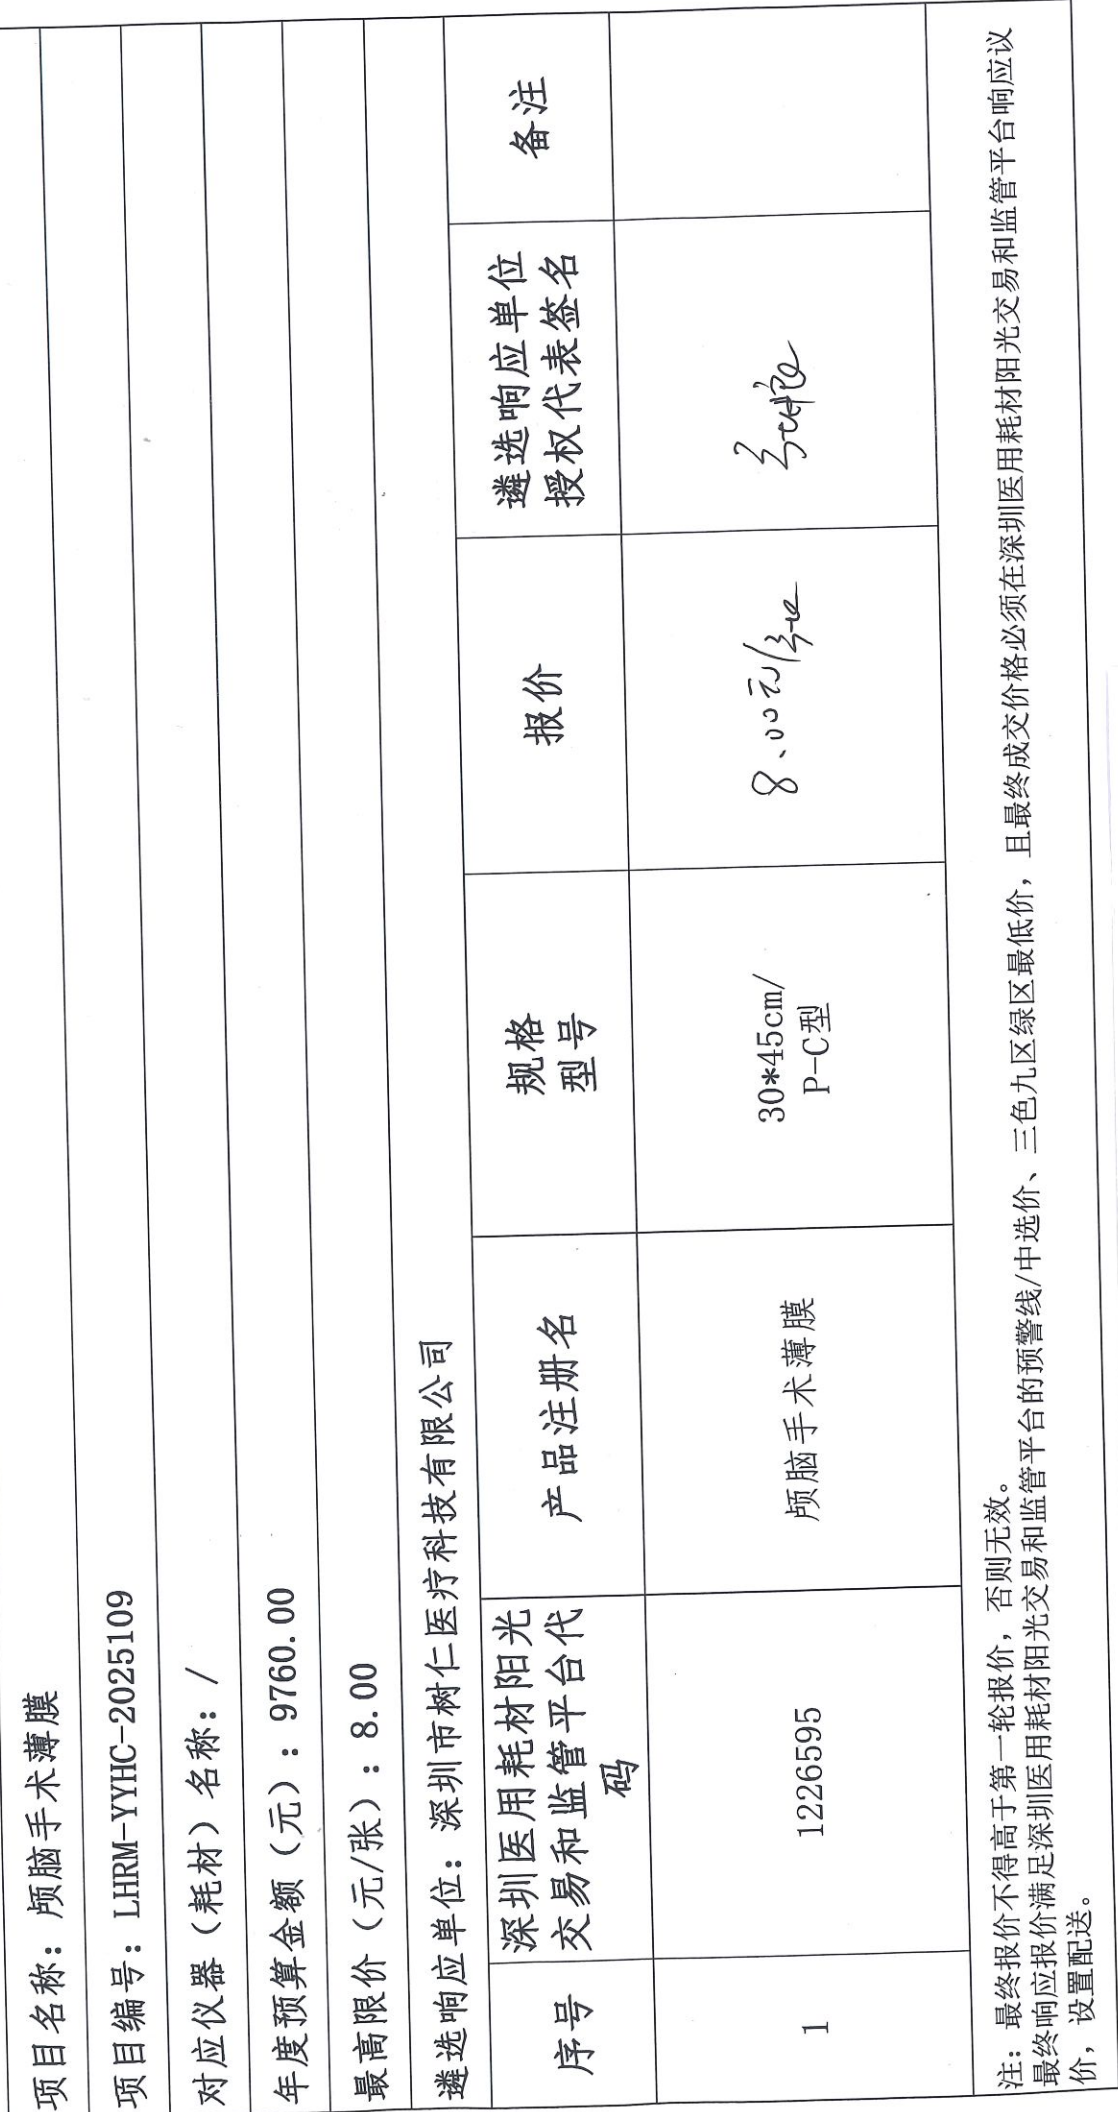 项目名称：颅脑手术薄膜
项目编号：LHRM-YYHC-2025109
对应仪器（耗材）名称：/
年度预算金额（元）：9760.00
最高限价（元/张）：8.00
遴选响应单位：深圳市树仁医疗科技有限公司
序号
深圳医用耗材阳光
交易和监管平台代
码
产品注册名
规格
型号
报价
遴选响应单位
授权代表签名
备注
1
1226595
颅脑手术薄膜
30*45cm/
P-C型
8.00元/张
注：最终报价不得高于第一轮报价，否则无效。
最终响应报价满足深圳医用耗材阳光交易和监管平台的预警线/中选价、三色九区绿区最低价，且最终成交价格必须在深圳医用耗材阳光交易和监管平台响应议
价，设置配送。